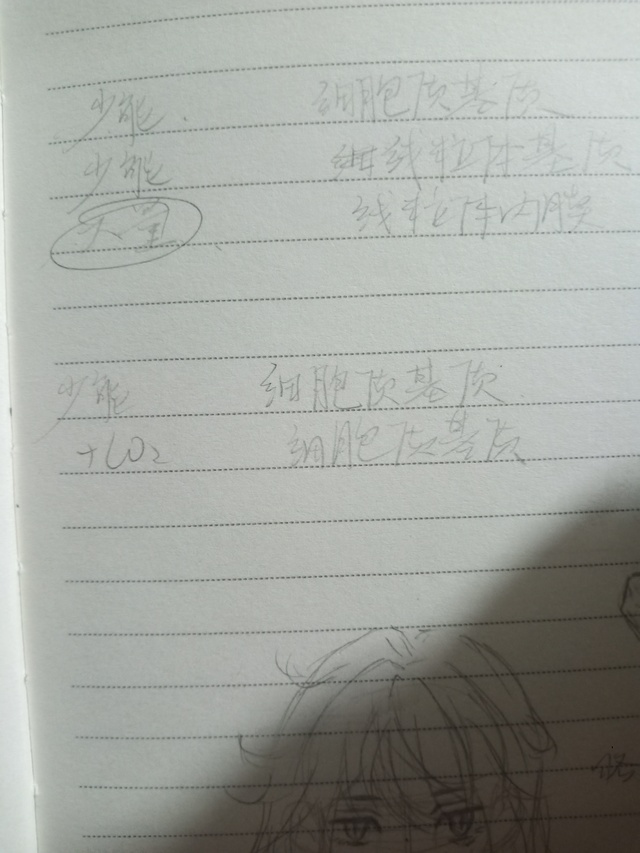 少能. 细胞质基质
少能 线粒体基质
大量 线粒体内膜
少能 细胞质基质
+CO₂ 细胞质基质